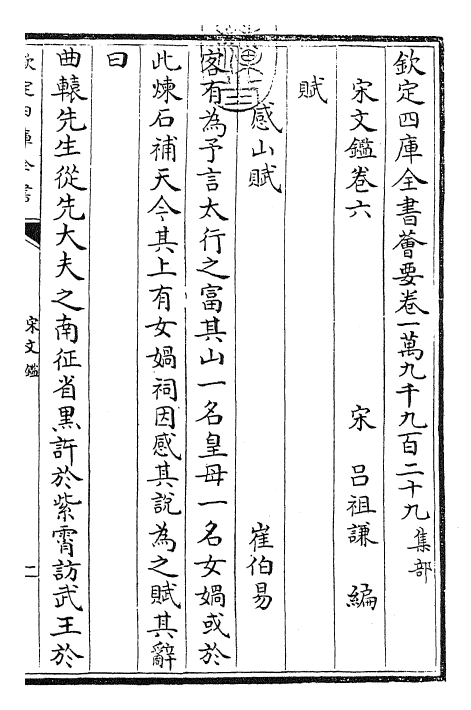 欽定四庫全書薈要卷一萬九千九百二十九集部
宋文鑑卷六　宋　呂祖謙　編
賦
感山賦　崔伯易
客有為予言太行之富其山一名皇母一名女媧或於
此煉石補天今其上有女媧祠因感其說為之賦其辭
曰
曲轅先生從先大夫之南征省黒許於紫霄訪武王於
欽定四庫全書
宋文鑑